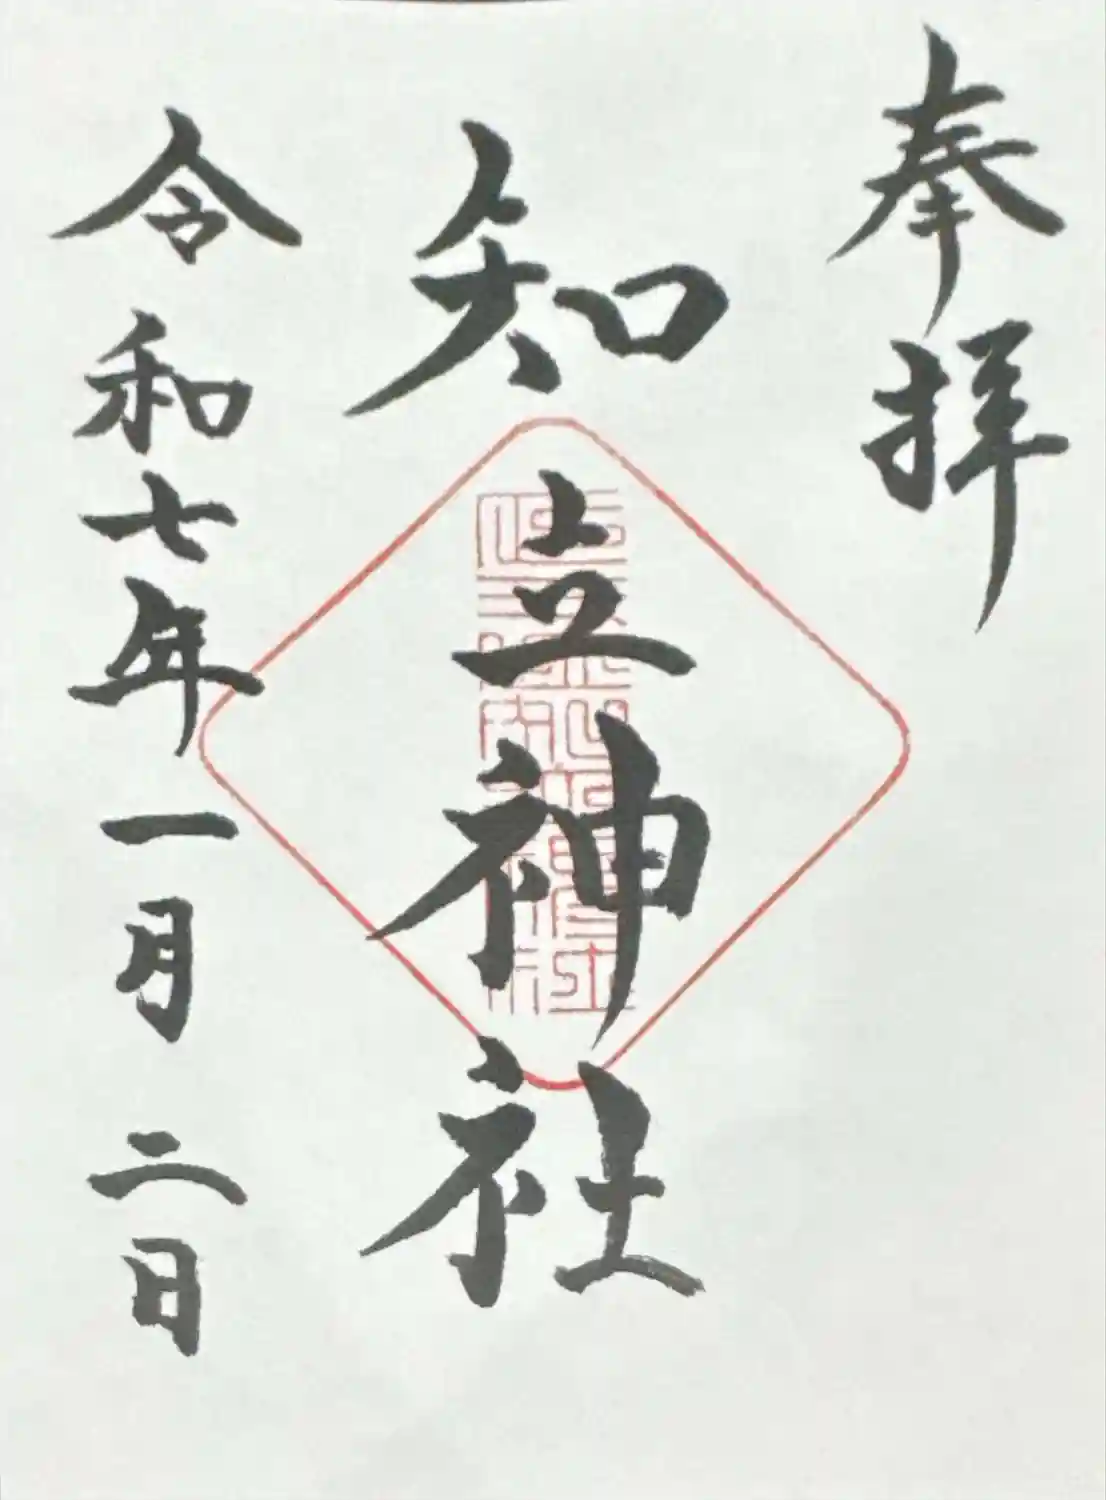 奉拝
知立神社
令和七年一月二日